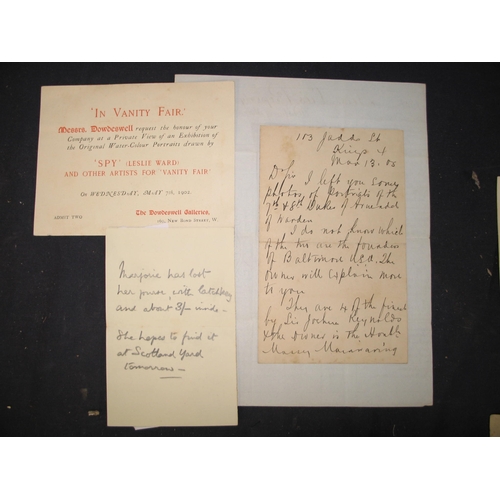 'IN VANITY FAIR.'
Messrs. Dowdeswell request the honour of your
Company at a Private View of an Exhibition of
the Original Water-Colour Portraits drawn by
'SPY' (LESLIE WARD)
AND OTHER ARTISTS FOR 'VANITY FAIR'
ON WEDNESDAY, MAY 7th, 1902.
ADMIT TWO
The Dowdeswell Galleries,
160, NEW BOND STREET, W.
Marjorie has lost
her purse with latchkey
and about 3/- inside –
She hopes to find it
at Scotland Yard
tomorrow –
153 Judd St
Kings +
Mar 13. 05
Dr Sir I left you some
photos of Portraits of the
7th & 8th
of Warden
I do not know which
of the two are the founders
of Baltimore USA. The
owner will explain more
to you
They are 4 of the finest
by Sir Joshua Reynolds
& the Owner is the Honble
Massey Mainwaring